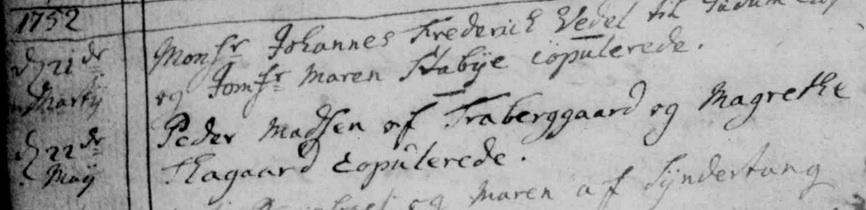 1752
d 21 dr Monsr Johannes Frederich Vedel til
Martij og Jomfr Maren Stabye copulerede.
d 22 dr Peder Madsen af Traberggaard og Magrethe
Maij Skagaard copulerede.
og Maren af Synder